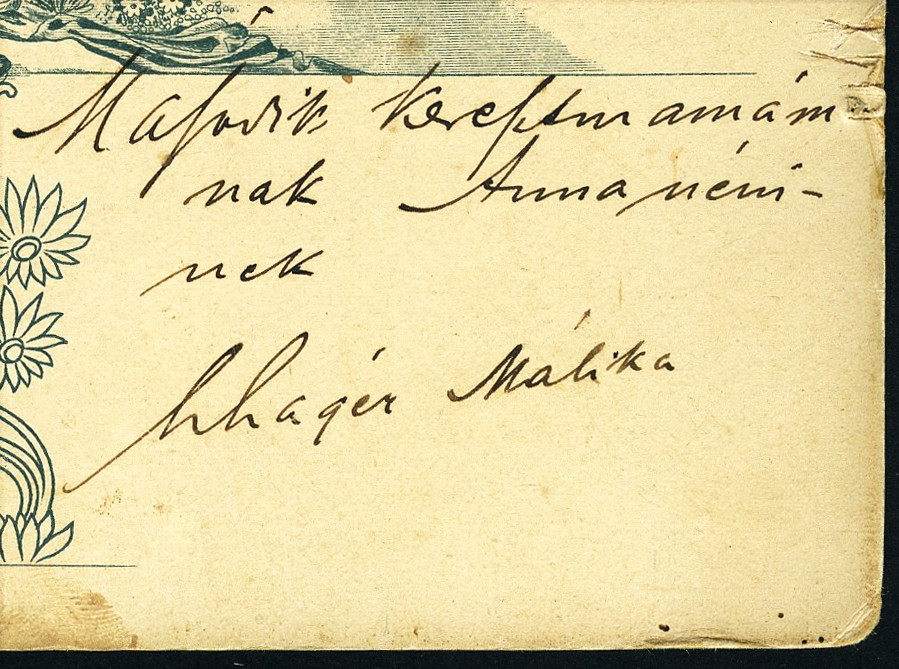 Második keresztmamám-
nak Anna néni-
nek
Málika